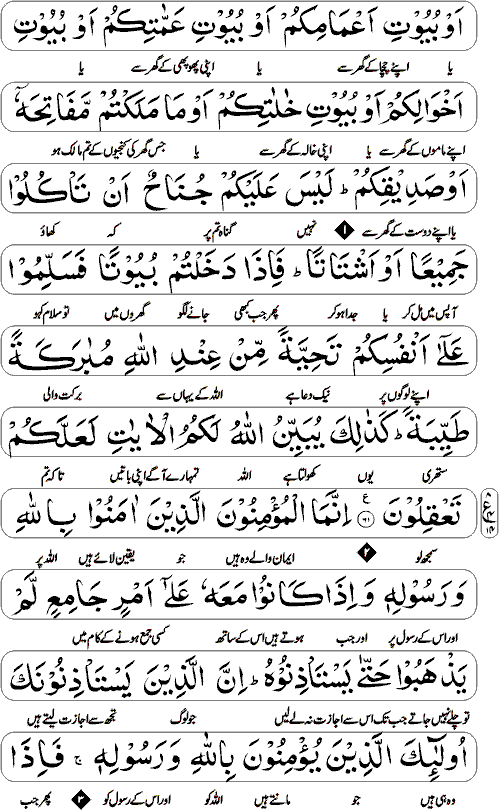 اَوۡ بُيُوۡتِ اَعۡمَامِكُمۡ اَوۡ بُيُوۡتِ عَمّٰتِكُمۡ اَوۡ بُيُوۡتِ
یا اپنے چچا کے گھر سے یا اپنی پھوپھی کے گھر سے یا
اَخۡوَالِكُمۡ اَوۡ بُيُوۡتِ خٰلٰتِكُمۡ اَوۡ مَا مَلَكۡتُمۡ مَّفَاتِحَهٗۤ
اپنے ماموں کے گھر سے یا اپنی خالہ کے گھر سے یا جس گھر کی کنجیوں کے تم مالک ہو
اَوۡ صَدِيۡقِكُمۡ‌ؕ لَيۡسَ عَلَيۡكُمۡ جُنَاحٌ اَنۡ تَاۡكُلُوۡا
یا اپنے دوست کے گھر سے ۱ نہیں گناہ تم پر کہ کھاؤ
جَمِيۡعًا اَوۡ اَشۡتَاتًا‌ؕ فَاِذَا دَخَلۡتُمۡ بُيُوۡتًا فَسَلِّمُوۡا
آپس میں مل کر یا جدا ہو کر پھر جب کبھی جانے لگو گھروں میں تو سلام کہو
عَلٰٓى اَنۡفُسِكُمۡ تَحِيَّةً مِّنۡ عِنۡدِ اللّٰهِ مُبٰرَكَةً
اپنے لوگوں پر نیک دعا ہے اللہ کے یہاں سے برکت والی
طَيِّبَةً‌ ؕ كَذٰلِكَ يُبَيِّنُ اللّٰهُ لَـكُمُ الۡاٰيٰتِ لَعَلَّكُمۡ
ستھری یوں کھولتا ہے اللہ تمہارے آگے اپنی باتیں تاکہ تم
تَعۡقِلُوۡنَ ﴿۶۱﴾ ع اِنَّمَا الۡمُؤۡمِنُوۡنَ الَّذِيۡنَ اٰمَنُوۡا بِاللّٰهِ
سمجھ لو ۲ ایمان والے وہ ہیں جو یقین لائے ہیں اللہ پر
وَرَسُوۡلِهٖ وَاِذَا كَانُوۡا مَعَهٗ عَلٰٓى اَمۡرٍ جَامِعٍ لَّمۡ
اور اس کے رسول پر اور جب ہوتے ہیں اس کے ساتھ کسی جمع ہونے کے کام میں
يَذۡهَبُوۡا حَتّٰى يَسۡتَاۡذِنُوۡهُ‌ ؕ اِنَّ الَّذِيۡنَ يَسۡتَاۡذِنُوۡنَكَ
تو چلے نہیں جاتے جب تک اس سے اجازت نہ لے لیں جو لوگ تجھ سے اجازت لیتے ہیں
اُولٰٓٮِٕكَ الَّذِيۡنَ يُؤۡمِنُوۡنَ بِاللّٰهِ وَرَسُوۡلِهٖ‌ۚ فَاِذَا
وہ ہی ہیں جو مانتے ہیں اللہ کو اور اس کے رسول کو ۳ پھر جب